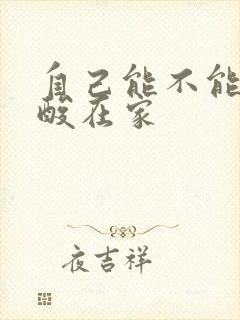 自己能不能
酸在家
夜吉祥